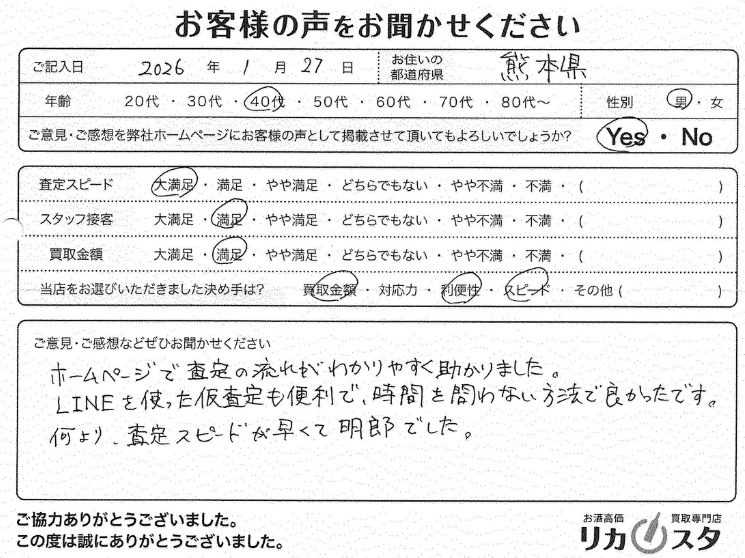 お客様の声をお聞かせください
ご記入日 2026 年 1 月 27 日 お住いの都道府県 熊本県
年齢 20代 ・ 30代 ・ 40代 ・ 50代 ・ 60代 ・ 70代 ・ 80代～ 性別 男 ・ 女
ご意見・ご感想を弊社ホームページにお客様の声として掲載させて頂いてもよろしいでしょうか? Yes ・ No
査定スピード 大満足 ・ 満足 ・ やや満足 ・ どちらでもない ・ やや不満 ・ 不満 ・ ( )
スタッフ接客 大満足 ・ 満足 ・ やや満足 ・ どちらでもない ・ やや不満 ・ 不満 ・ ( )
買取金額 大満足 ・ 満足 ・ やや満足 ・ どちらでもない ・ やや不満 ・ 不満 ・ ( )
当店をお選びいただきました決め手は? 買取金額 ・ 対応力 ・ 利便性 ・ スピード ・ その他 ( )
ご意見・ご感想などぜひお聞かせください
ホームページで査定の流れがわかりやすく助かりました。
LINEを使った仮査定も便利で、時間を問わない方法で良かったです。
何より、査定スピードが早くて明郎でした。
ご協力ありがとうございました。
この度は誠にありがとうございました。
お酒高価 買取専門店
リカスタ